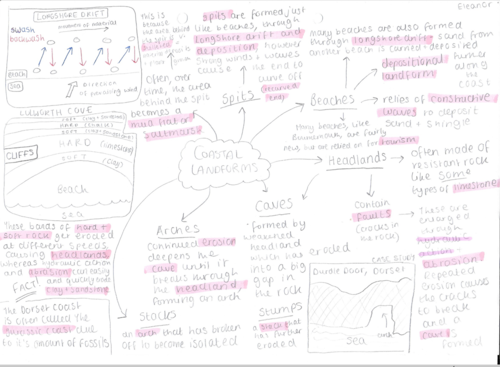 Eleanor
LONGSHORE DRIFT
swash
backwash
movement of material
Beach
Sea
Direction
of prevailing wind
this is
because
Often, over
time, the area
behind the spit
becomes a
mud flat or
saltmarsh
spits are formed, just
like beaches, through
longshore drift and
deposition, however
strong winds + waves
cause the end to
curve off
Spits
many beaches are also formed
through longshore drift. sand from
another beach is carried + deposited
depositional
landform
further
along
the
coast
Beaches
relies of constructive
waves to deposit
sand + shingle
Many beaches, like
Bournemouth, are fairly
and are relied on for tourism
LULWORTH COVE
HARD (limestone)
SOFT (clay)
CLIFFS
Beach
Sea
COASTAL
LANDFORMS
Headlands
Often made of
resistant rock
like some
types of limestone
Contain
faults
(cracks in
the rock)
These are
enlarged
through
abrasion
repeated
erosion causes
the cracks
to break
and a
cave is
formed
These bands of hard +
soft rock get eroded
at different speeds
causing headlands
whereas hydraulic action
and abrasion can easily
and quickly erode
clay + sandstone
FACT!
The Dorset Coast
is often called the
Jurassic coast due
to it's amount of fossils
Arches
Continued erosion
deepens the
cave until it
breaks through
the headland,
forming an arch
Caves
formed by
weakened
headland
which has
eroded
into a big
gap in
the rock
Stacks
an arch that has broken
off to become isolated
Stumps
a stack that
has further
eroded
CASE STUDY
Durdle Door, Dorset
arch
Sea